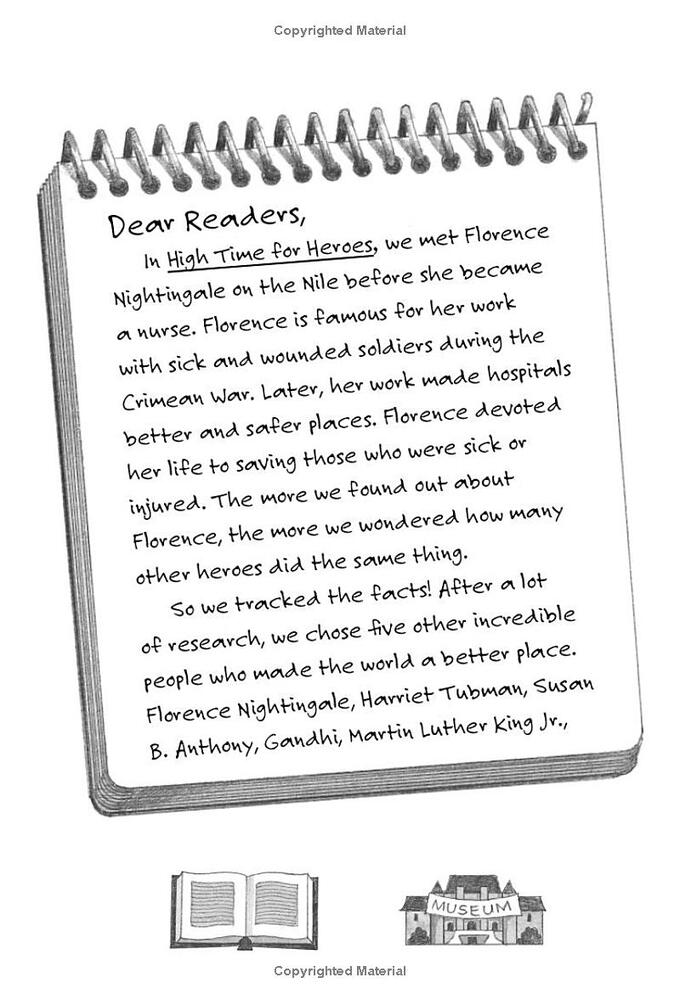 Copyrighted Material
Dear Readers,
In High Time for Heroes, we met Florence
Nightingale on the Nile before she became
a nurse. Florence is famous for her work
with sick and wounded soldiers during the
Crimean War. Later, her work made hospitals
better and safer places. Florence devoted
her life to saving those who were sick or
injured. The more we found out about
Florence, the more we wondered how many
other heroes did the same thing.
So we tracked the facts! After a lot
of research, we chose five other incredible
people who made the world a better place.
Florence Nightingale, Harriet Tubman, Susan
B. Anthony, Gandhi, Martin Luther King Jr.,
MUSEUM
Copyrighted Material